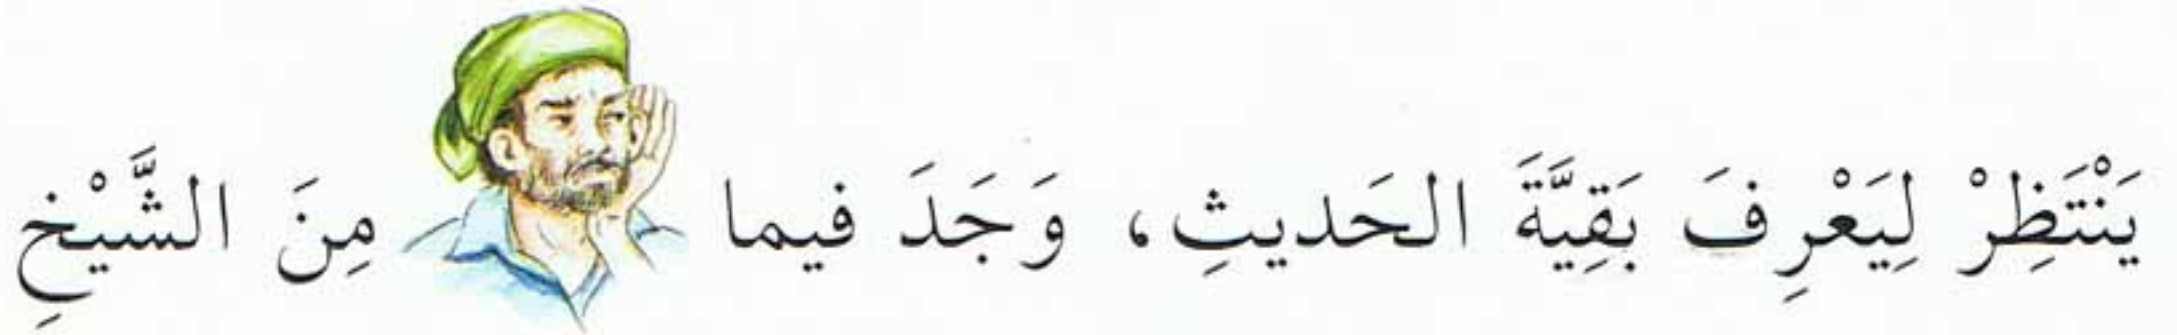 يَنْتَظِرْ لِيَعْرِفَ بَقِيَّةَ الحَديثِ، وَجَدَ فيما مِنَ الشَّيْخِ